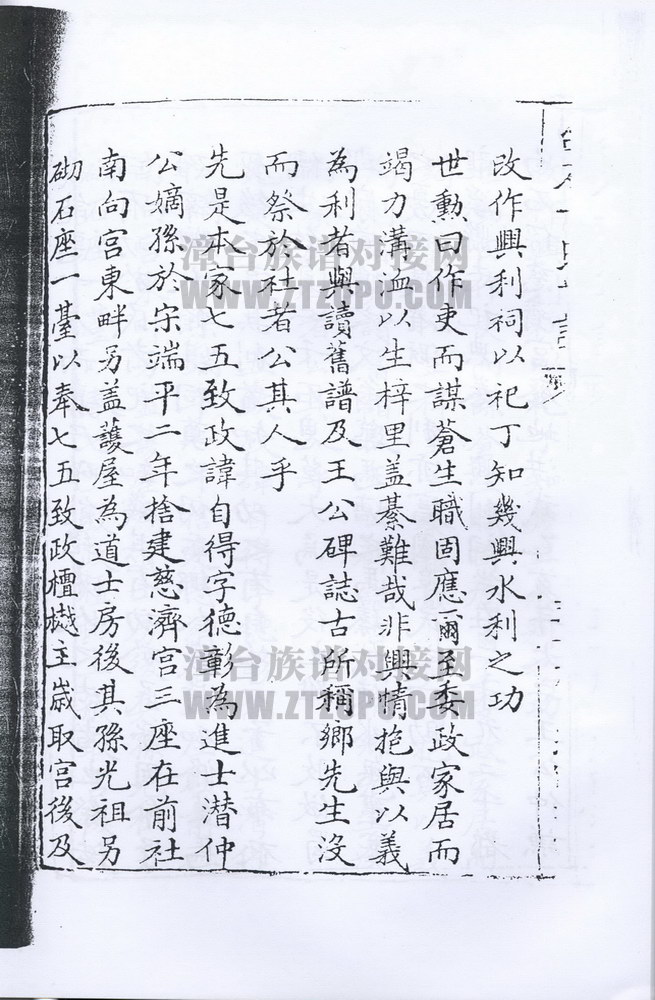 改作興利祠以祀丁知幾興水利之功
世勳曰作吏而謀蒼生職固應爾至委政家居而
竭力溝洫以生梓里盖綦難哉非興情抱與以義
為利者與讀舊譜及王公碑誌古所稱鄉先生没
而祭於社者公其人乎
先是本家七五致政諱自得字德彰為進士潜仲
公嫡孫於宋端平二年捨建慈濟宮三座在前社
南向宮東畔另盖護屋為道士房後其孫光祖另
砌石座一臺以奉七五致政檀樾主嵗取宮後及
漳台族谱对接网
WWW.ZTZUPU.COM
漳台族谱对接网
WWW.ZTZUPU.COM